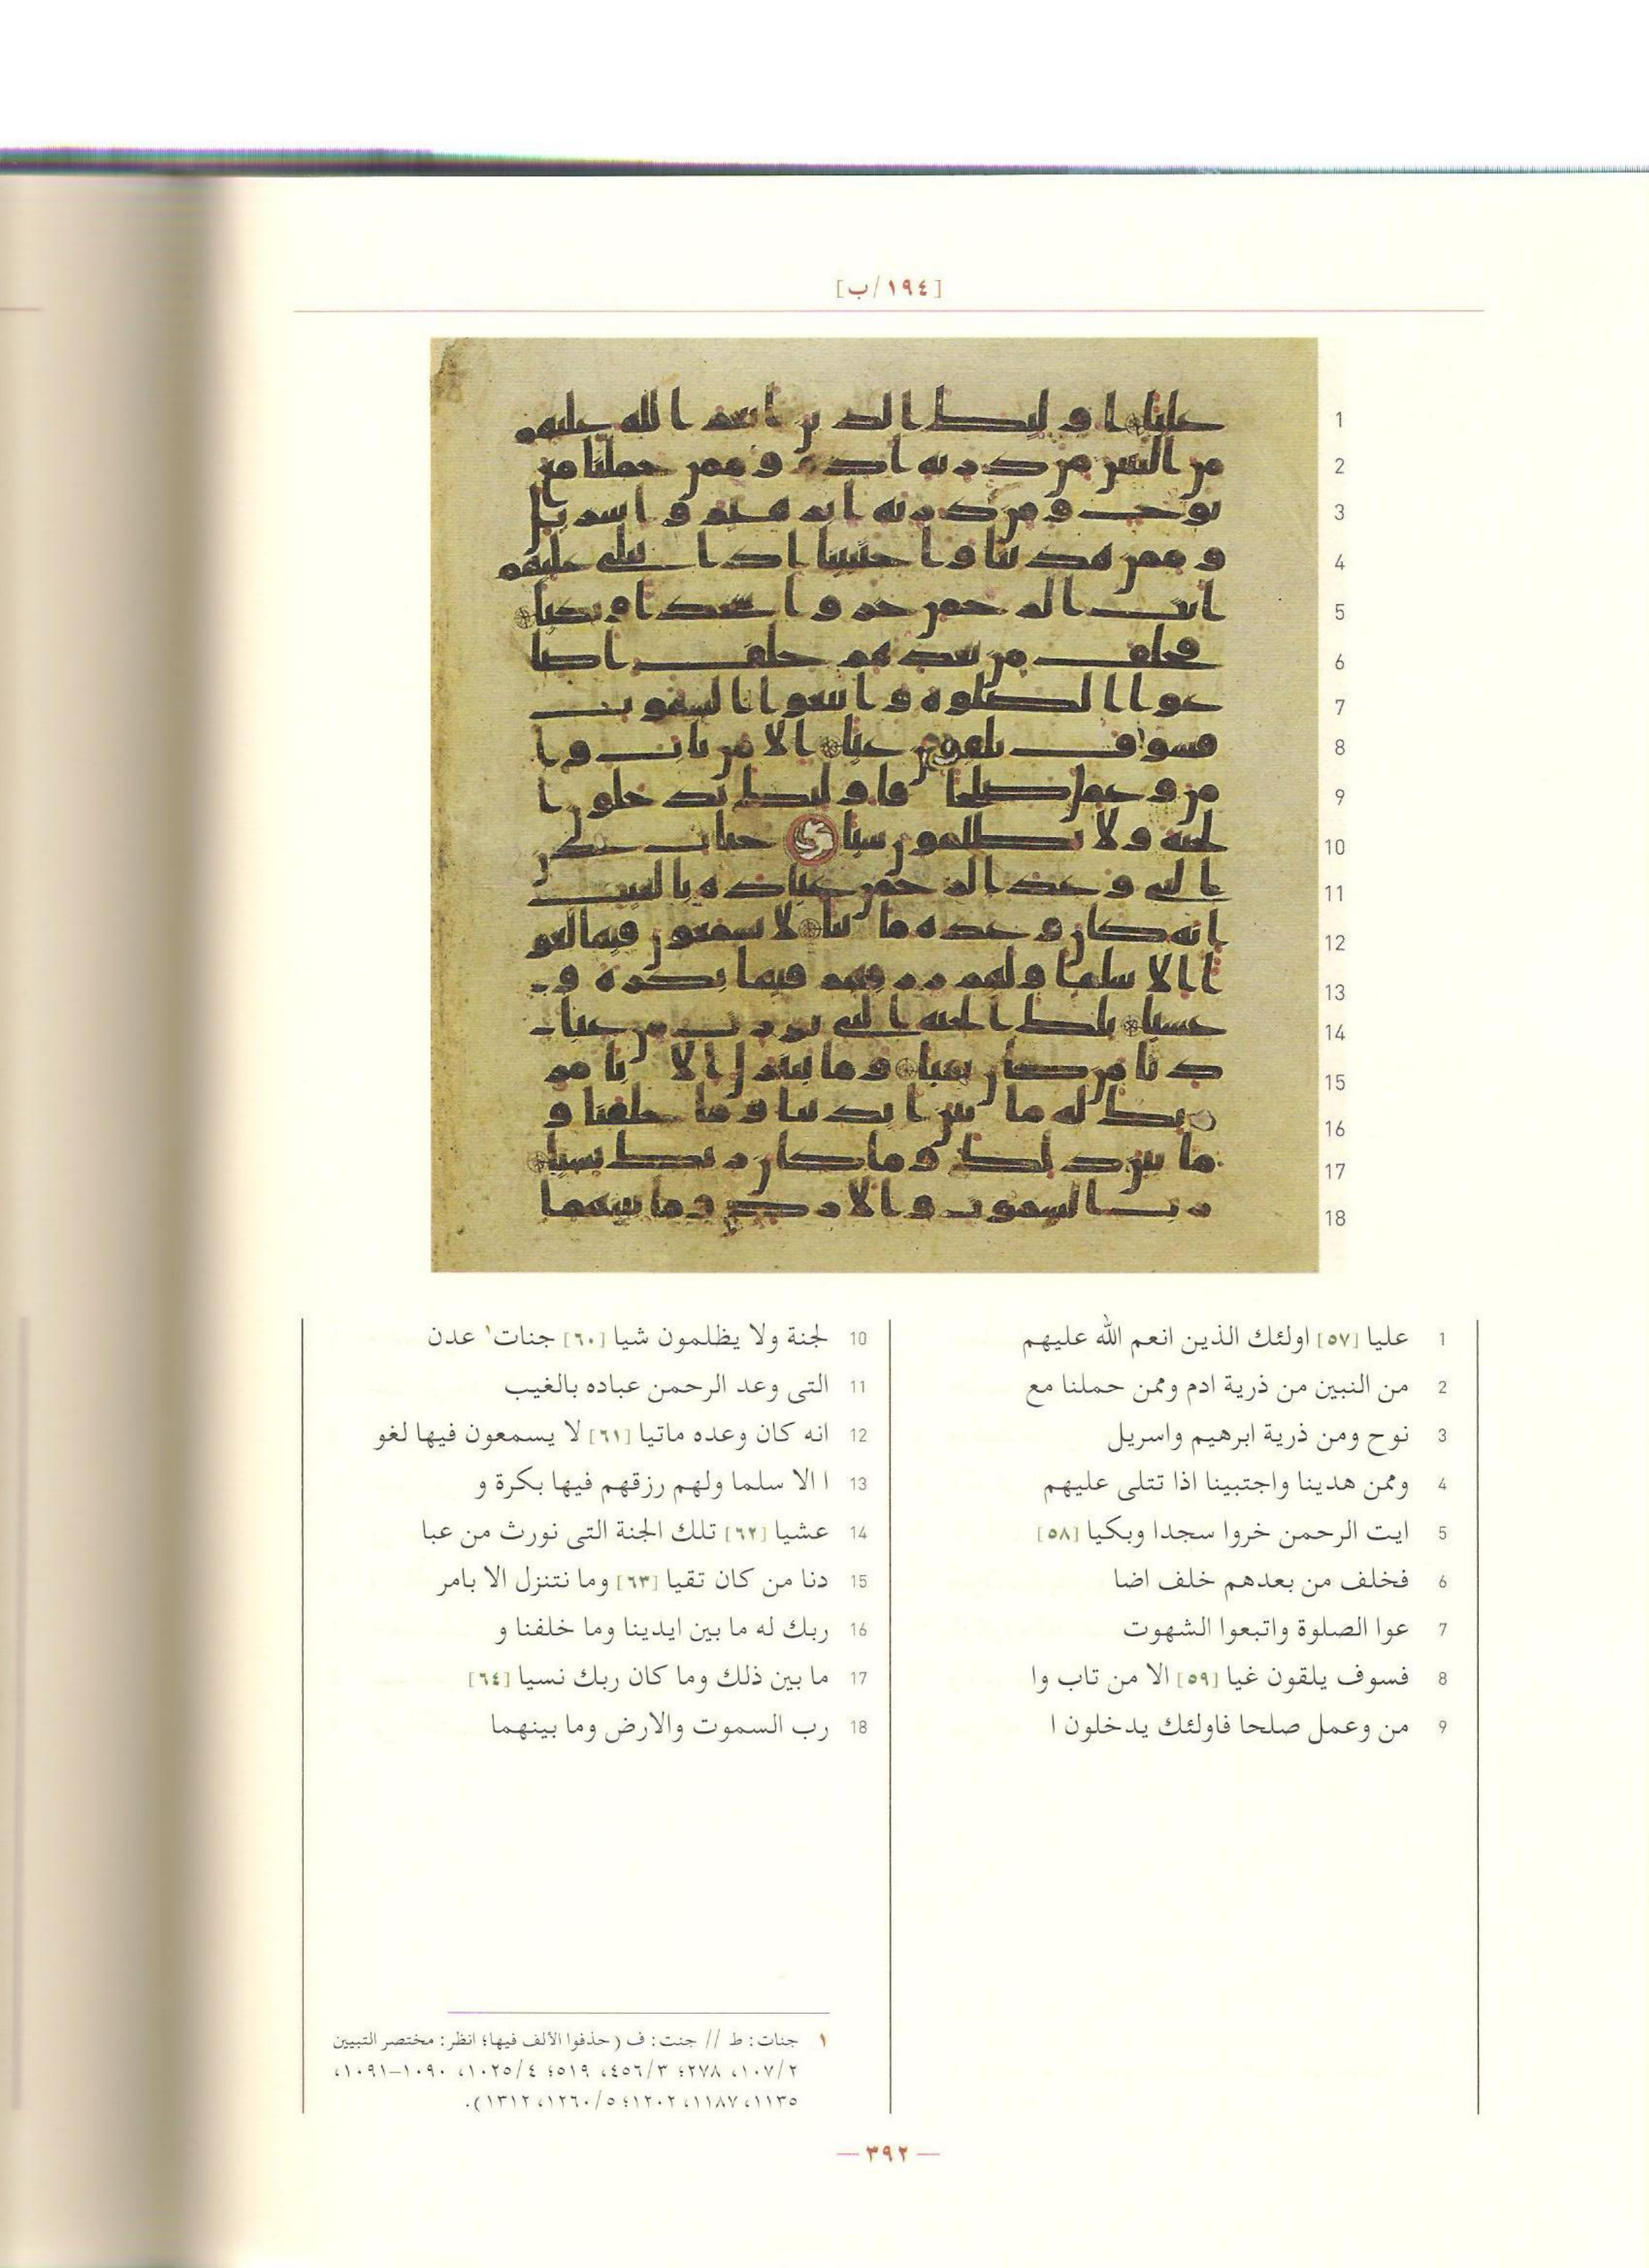 [١٩٤/ب]
1 عليا [٥٧] اولئك الذين انعم الله عليهم
2 من النبين من ذرية ادم وممن حملنا مع
3 نوح ومن ذرية ابرهيم واسريل
4 وممن هدينا واجتبينا اذا تتلى عليهم
5 ايت الرحمن خروا سجدا وبكيا [٥٨]
6 فخلف من بعدهم خلف اضا
7 عوا الصلوة واتبعوا الشهوت
8 فسوف يلقون غيا [٥٩] الا من تاب وا
9 من وعمل صلحا فاولئك يدخلون ا
10 لجنة ولا يظلمون شيا [٦٠] جنات١ عدن
11 التى وعد الرحمن عباده بالغيب
12 انه كان وعده ماتيا [٦١] لا يسمعون فيها لغو
13 ا الا سلما ولهم رزقهم فيها بكرة و
14 عشيا [٦٢] تلك الجنة التى نورث من عبا
15 دنا من كان تقيا [٦٣] وما نتنزل الا بامر
16 ربك له ما بين ايدينا وما خلفنا و
17 ما بين ذلك وما كان ربك نسيا [٦٤]
18 رب السموت والارض وما بينهما
١ جنات: ط // جنت: ف (حذفوا الألف فيها؛ انظر: مختصر التبيين
٢/١٠٧، ٢٧٨؛ ٣/٤٥٦، ٥١٩؛ ٤/١٠٢٥، ١٠٩٠–١٠٩١،
١١٣٥، ١١٨٧، ١٢٠٢؛ ٥/١٢٦٠، ١٣١٢).
— ٣٩٢ —